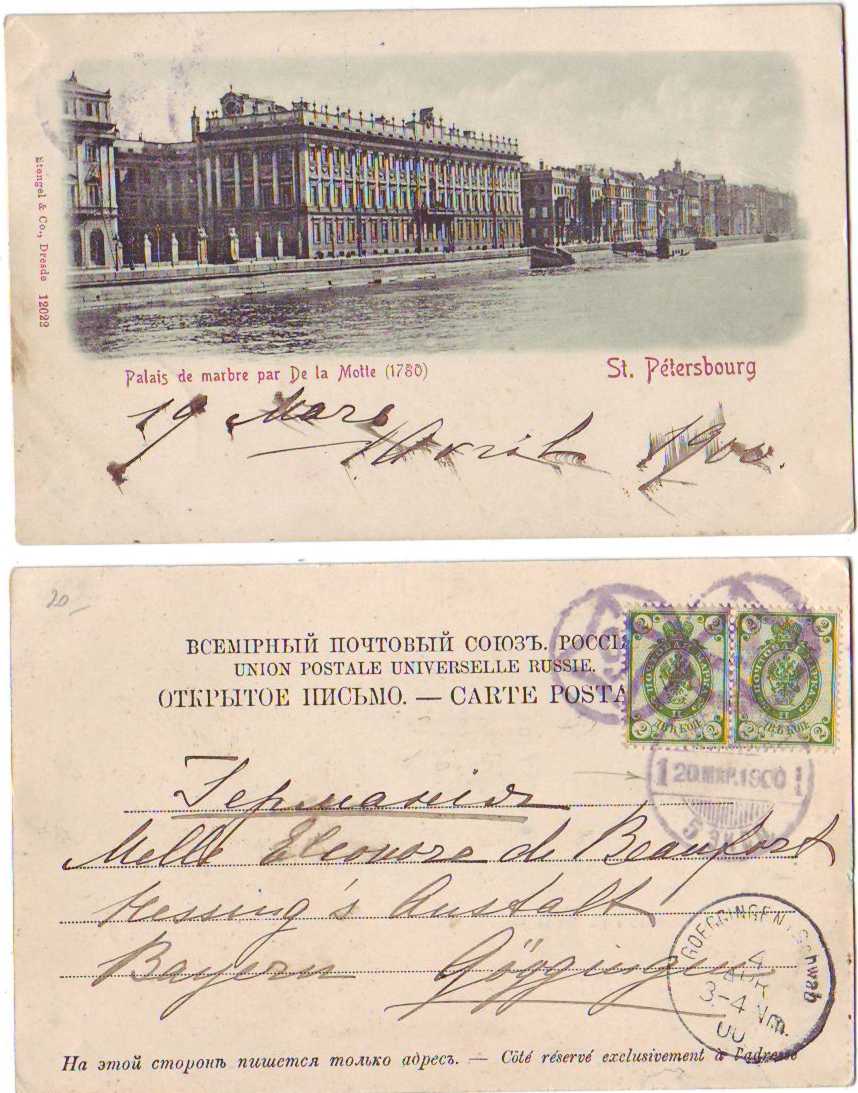 Stengel & Co., Dresde 12022
Palais de marbre par De la Motte (1780)
St. Pétersbourg
19 Mars
1 Avril 1900.
20
ВСЕМІРНЫЙ ПОЧТОВЫЙ СОЮЗЪ. РОССІЯ
UNION POSTALE UNIVERSELLE RUSSIE.
ОТКРЫТОЕ ПИСЬМО. — CARTE POSTA
2 2
ПОЧТОВАЯ МАРКА
ДВѢ КОП.
2 2
2 2
ПОЧТОВАЯ МАРКА
ДВѢ КОП.
2 2
1 20 МАР. 1900
5
Германія
Melle Eleonore de Beaufort
Hessing's Anstalt
Bayern Göggingen
GOEGGINGEN i. Schwab
4
APR
3-4 Nm.
00
На этой сторонѣ пишется только адресъ. — Côté réservé exclusivement à l'adresse